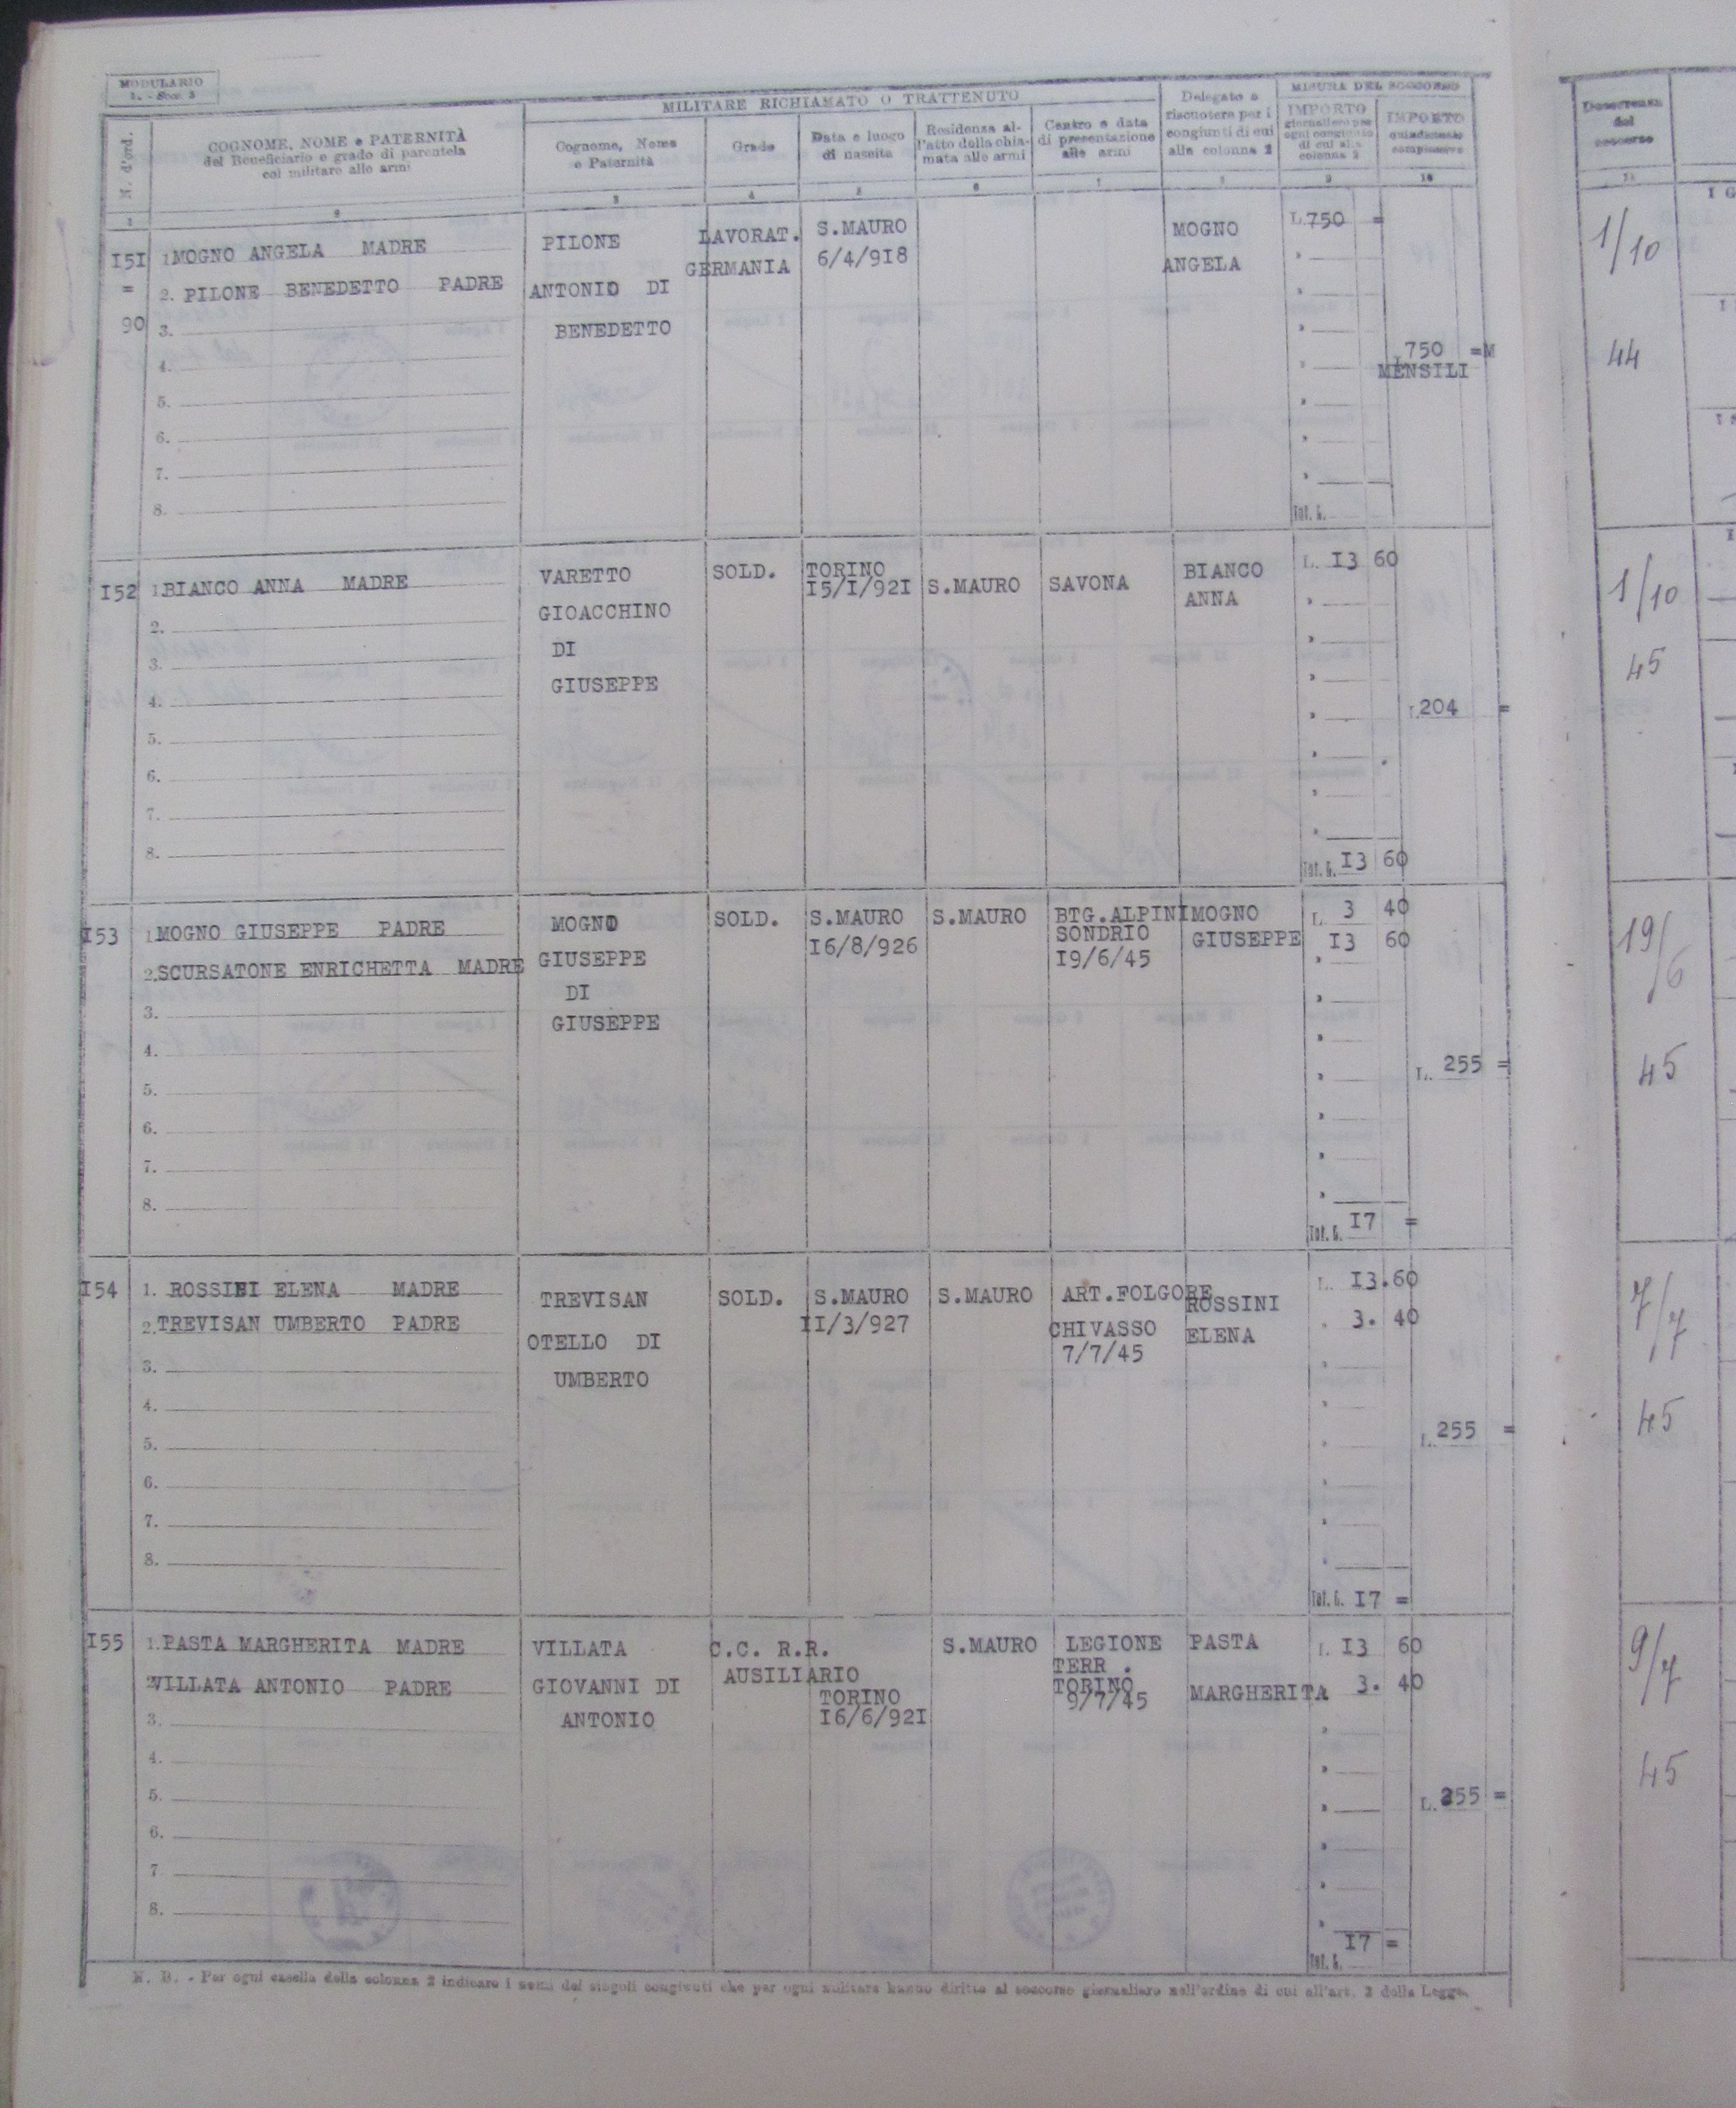 MODULARIO
COGNOME, NOME e PATERNITÀ
del Beneficiario e grado di parentela
col militare alle armi
N. d'ord.
MILITARE RICHIAMATO O TRATTENUTO
Cognome, Nome
e Paternità
Grado
Data e luogo
di nascita
Residenza al-
l'atto della chia-
mata alle armi
Centro e data
di presentazione
alle armi
Delegato a
riscuotere per i
congiunti di cui
alla colonna 2
MISURA DEL SOCCORSO
IMPORTO
giornaliero per
ogni congiunto
di cui alla
colonna 2
IMPORTO
quindicinale
complessivo
Decorrenza
del
soccorso
1 2 3 4 5 6 7 9 10
I5I
=
90
1. MOGNO ANGELA MADRE
2. PILONE BENEDETTO PADRE
3.
4.
5.
6.
7.
8.
PILONE
ANTONIO DI
BENEDETTO
LAVORAT.
GERMANIA
S.MAURO
6/4/9I8
MOGNO
ANGELA
L. 750 =
Tot. G.
750 =M
MENSILI
1/10
44
I52
1. BIANCO ANNA MADRE
2.
3.
4.
5.
6.
7.
8.
VARETTO
GIOACCHINO
DI
GIUSEPPE
SOLD.
TORINO
I5/I/92I
S.MAURO
SAVONA
BIANCO
ANNA
L. I3 60
Tot. G. I3 60
L. 204 =
1/10
45
I53
1. MOGNO GIUSEPPE PADRE
2. SCURSATONE ENRICHETTA MADRE
3.
4.
5.
6.
7.
8.
MOGNO
GIUSEPPE
DI
GIUSEPPE
SOLD.
S.MAURO
I6/8/926
S.MAURO
BTG.ALPINI
SONDRIO
I9/6/45
MOGNO
GIUSEPPE
L. 3 40
I3 60
Tot. G. I7 =
L. 255 =
19/6
45
I54
1. ROSSINI ELENA MADRE
2. TREVISAN UMBERTO PADRE
3.
4.
5.
6.
7.
8.
TREVISAN
OTELLO DI
UMBERTO
SOLD.
S.MAURO
II/3/927
S.MAURO
ART.FOLGORE
CHIVASSO
7/7/45
ROSSINI
ELENA
L. I3.60
3. 40
Tot. G. I7 =
L. 255 =
7/7
45
I55
1. PASTA MARGHERITA MADRE
2. VILLATA ANTONIO PADRE
3.
4.
5.
6.
7
8.
VILLATA
GIOVANNI DI
ANTONIO
C.C. R.R.
AUSILIARIO
TORINO
I6/6/92I
S.MAURO
LEGIONE
TERR .
TORINO
9/7/45
PASTA
MARGHERITA
L. I3 60
3. 40
Tot. G. I7 =
L. 255 =
9/7
45
N. B. - Per ogni casella della colonna 2 indicare i nomi dei singoli congiunti che per ogni militare hanno diritto al soccorso giornaliero nell'ordine di cui all'art. 2 della Legge.